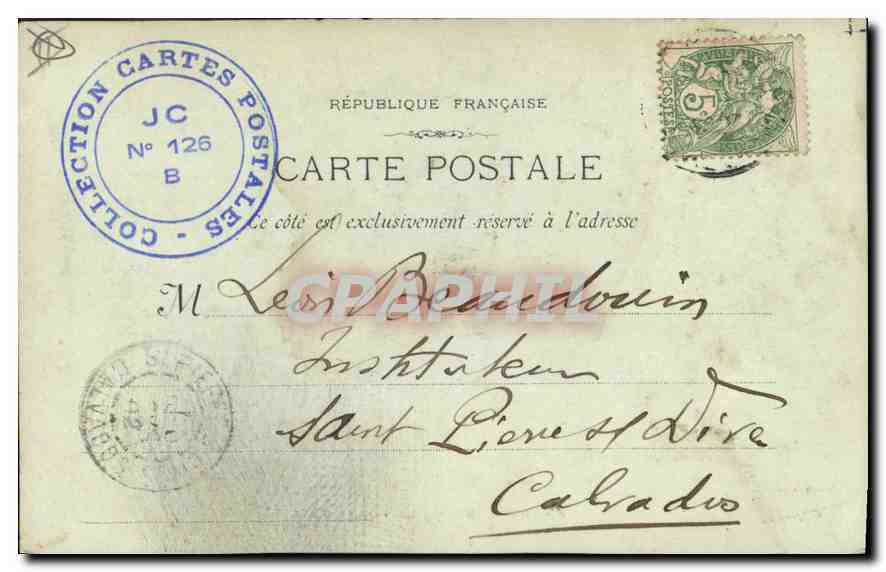 COLLECTION CARTES POSTALES -
JC
No 126
B
RÉPUBLIQUE FRANÇAISE
CARTE POSTALE
Ce côté est exclusivement réservé à l'adresse
M Léon Beaudouin
Instituteur
Saint Pierre s/ Dive
Calvados
GRAPHIL
5c
POSTES
ST PIERRE
CALVADOS